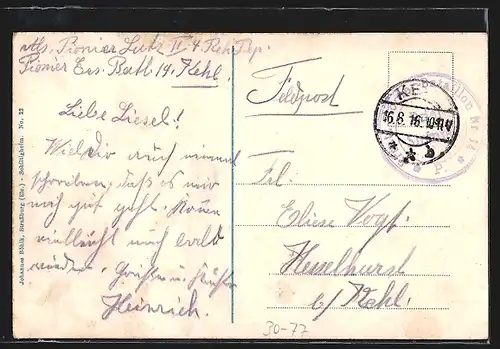 Abs. Pionier Lutz II 4. Rek. Dep.
Pionier Ers. Batl. 14. Kehl.
Liebe Liesel!
Will dir auch einmal
schreiben, daß es mir
noch gut geht. Komme
vielleicht auch bald
wieder. Grüße u. Küsse
Heinrich.
Johannes Röhlk, Straßburg (Els.) - Schiltigheim. No. 22
Feldpost
KEHL
16.8.16.10-11V
* * b
Bataillon Nr. 14
* P. *
Frl.
Eliese Vogt.
Hesselhurst
b/ Kehl.
30-77